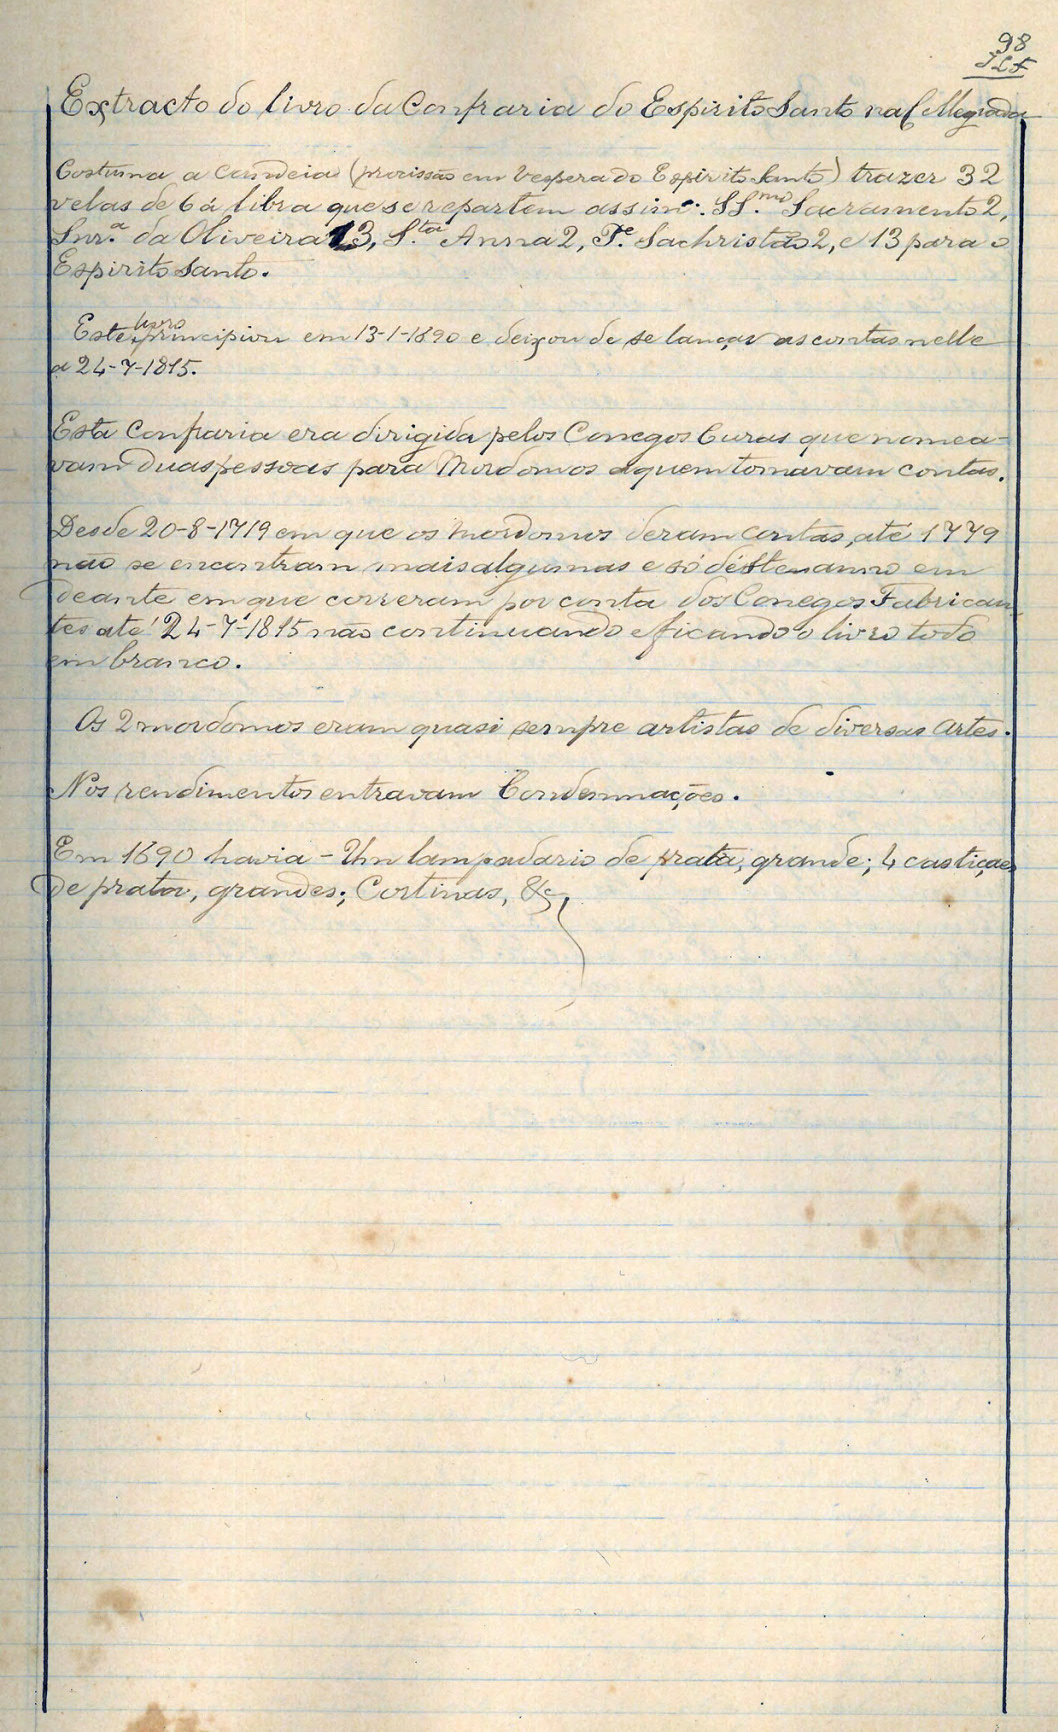 98
Extracto do livro da Confraria do Espirito Santo na Collegiada
Costuma a Candeia (procissão em Vespera do Espirito Santo) trazer 32
velas de 6 á libra que se repartem assim: SS.mo Sacramento 2,
Snr.a da Oliveira 13, S.ta Anna 2, T.e Sachristão 2, e 13 para o
Espirito Santo.
Este livro principiou em 13-1-1690 e deixou de se lançar as contas nelle
a 24-7-1815.
Esta Confraria era dirigida pelos Conegos Curas que nomea-
vam duas pessoas para Mordomos a quem tomavam contas.
Desde 20-8-1719 em que os mordomos deram contas, até 1779
não se encontram mais algumas e só déste anno em
deante em que correram por conta dos Conegos Fabrican-
tes até 24-7-1815 não continuando e ficando o livro todo
em branco.
Os 2 mordomos eram quasi sempre artistas de diversas artes.
Nos rendimentos entravam Condemnações.
Em 1690 havia - Um lampadario de prata, grande; 4 castiçaes
de prata, grandes; Cortinas, &c,